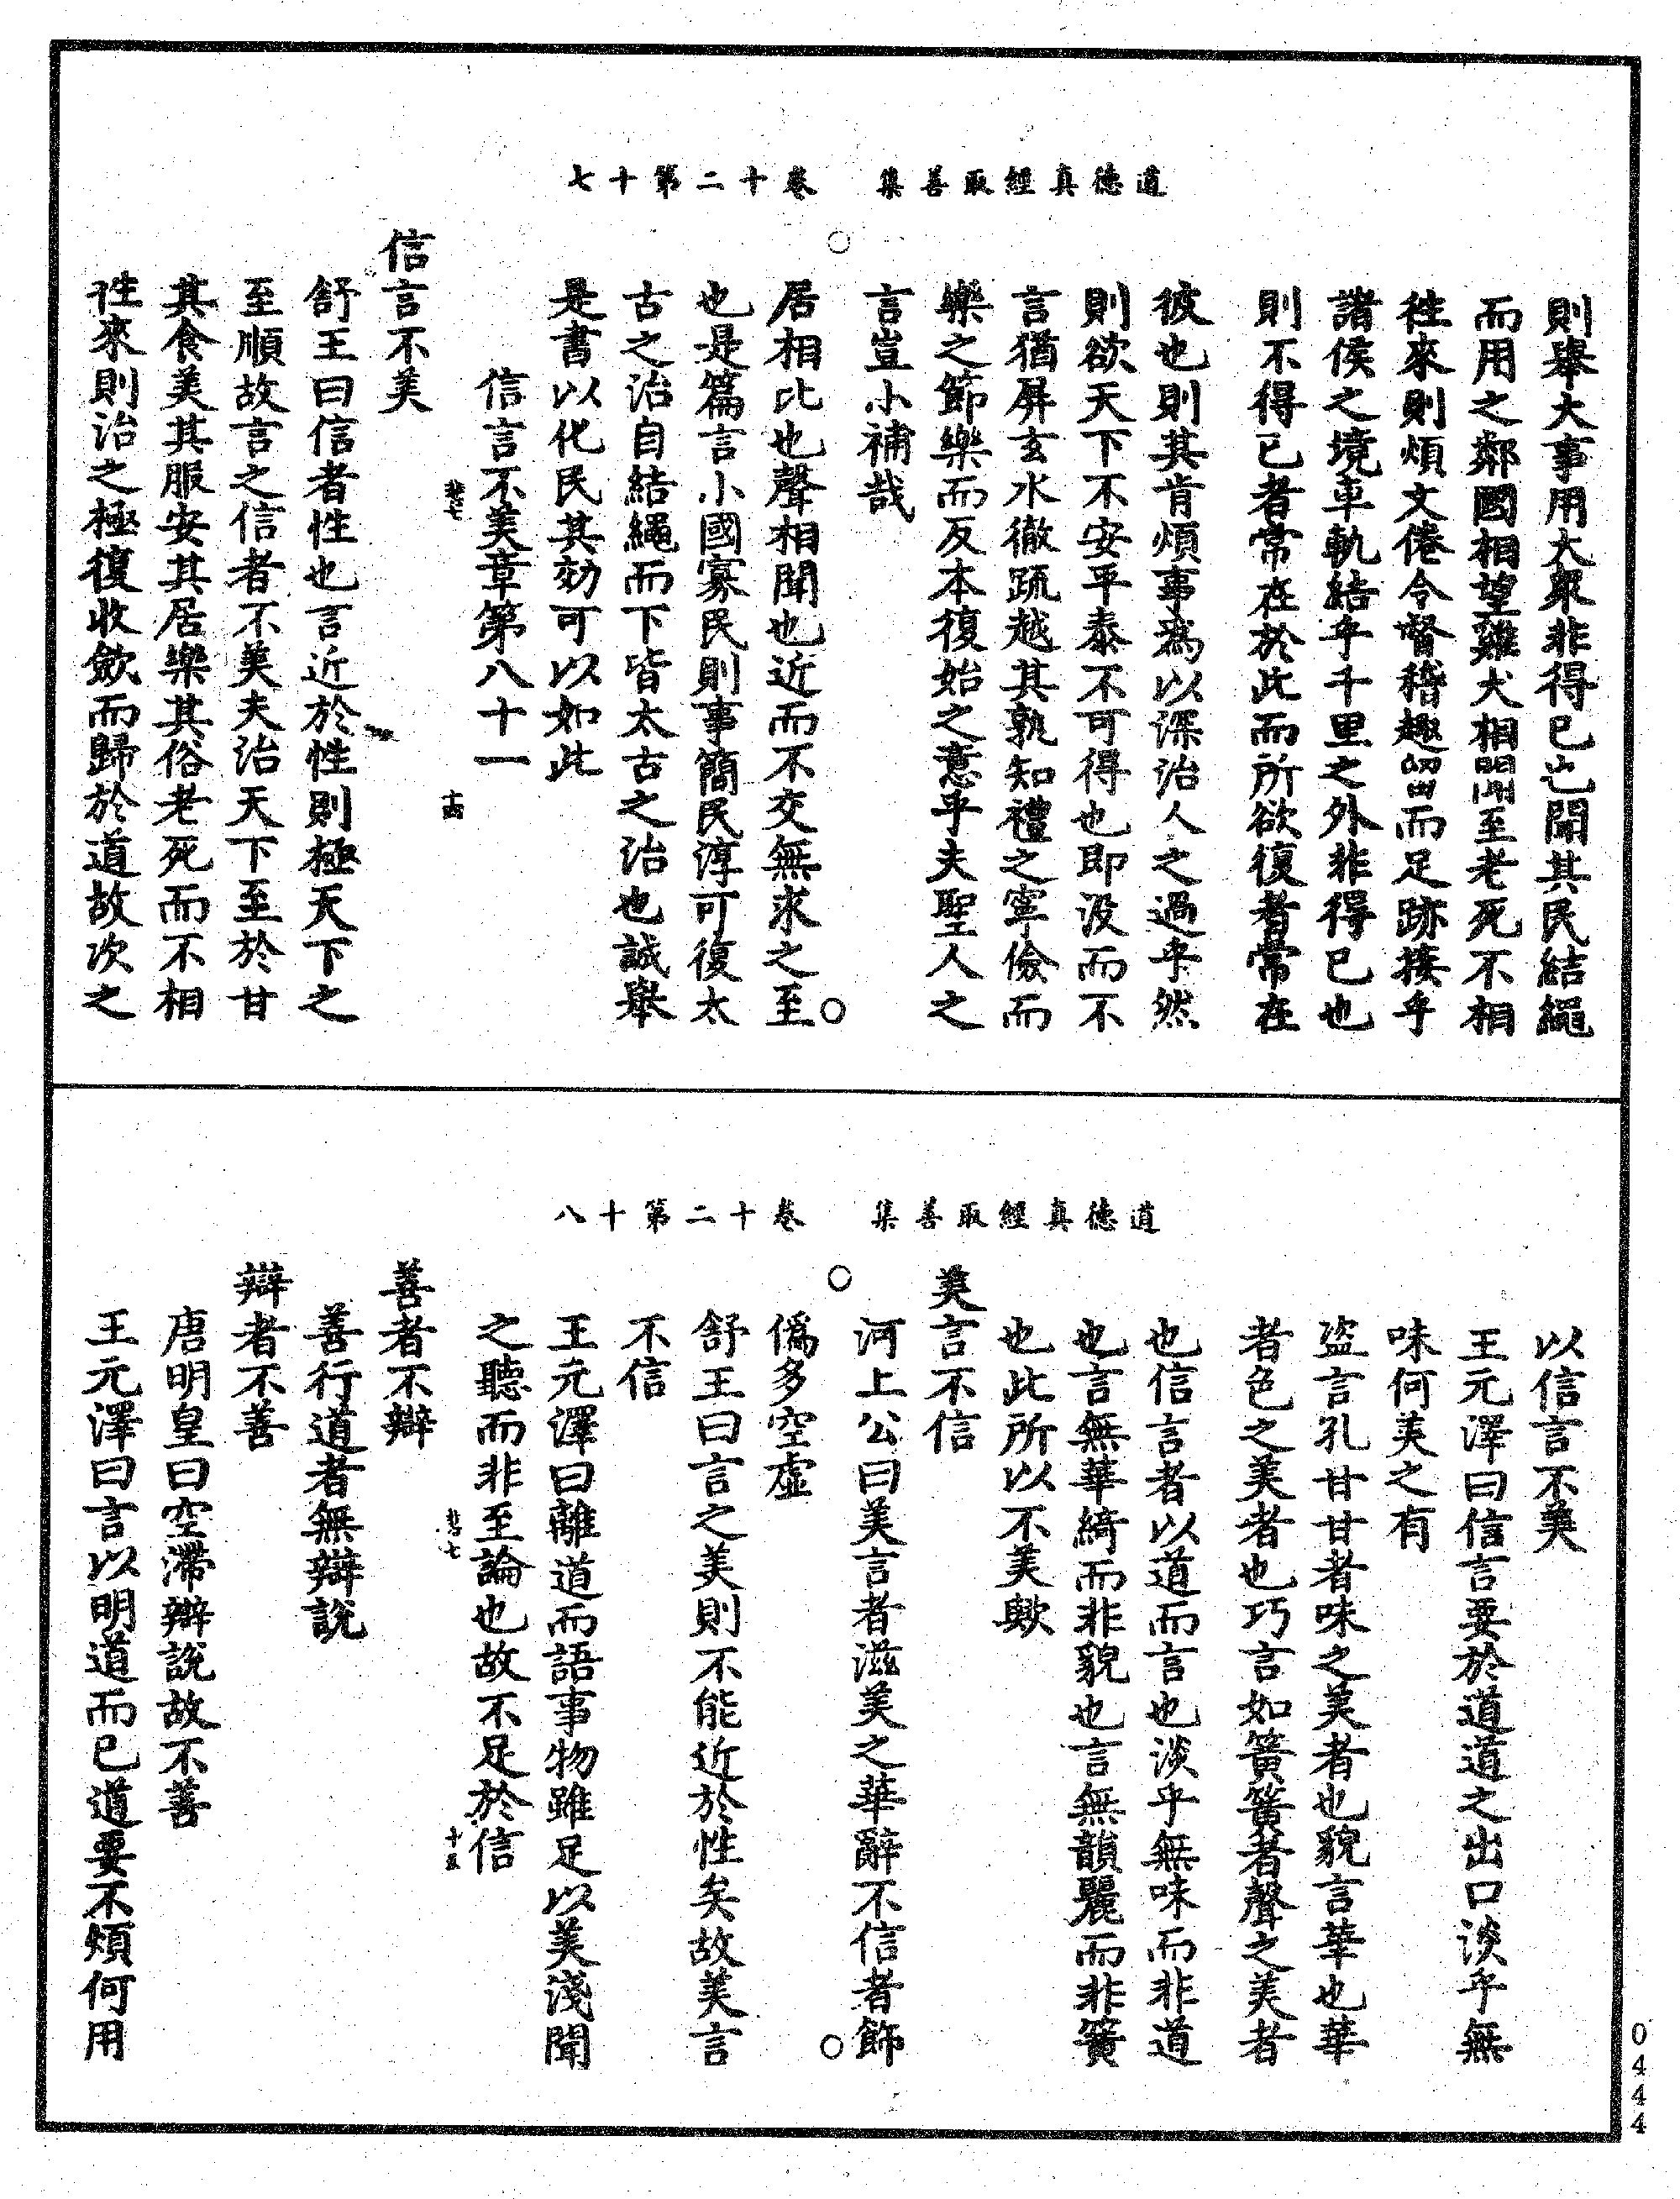 道德真經取善集　卷十二第十七
則舉大事用大衆非得已也聞其民結繩
而用之鄰國相望雞犬相聞至老死不相
徃來則煩文倦令督稽趣留而足跡接乎
諸侯之境車軌結乎千里之外非得已也
則不得已者常在於此而所欲復者常在
彼也則其肯煩事爲以深治人之過乎然
則欲天下不安平泰不可得也即汲而不
言猶屏玄水徹疏越其孰知禮之寧儉而
樂之節樂而反本復始之意乎夫聖人之
言豈小補哉
居相比也聲相聞也近而不交無求之至
也是篇言小國寡民則事簡民淳可復太
古之治自結繩而下皆太古之治也誠舉
是書以化民其効可以如此
信言不美章第八十一
十四
信言不美
舒王曰信者性也言近於性則極天下之
至順故言之信者不美夫治天下至於甘
其食美其服安其居樂其俗老死而不相
徃來則治之極復收斂而歸於道故次之
道德真經取善集　卷十二第十八
以信言不美
王元澤曰信言要於道道之出口淡乎無
味何美之有
盜言孔甘甘者味之美者也貌言華也華
者色之美者也巧言如簧簧者聲之美者
也信言者以道而言也淡乎無味而非道
也言無華綺而非貌也言無韻麗而非簧
也此所以不美歟
美言不信
河上公曰美言者滋美之華辭不信者飾
僞多空虛
舒王曰言之美則不能近於性矣故美言
不信
王元澤曰離道而語事物雖足以美淺聞
之聽而非至論也故不足於信
十五
善者不辯
善行道者無辯說
辯者不善
唐明皇曰空滯辯說故不善
王元澤曰言以明道而已道要不煩何用
0444